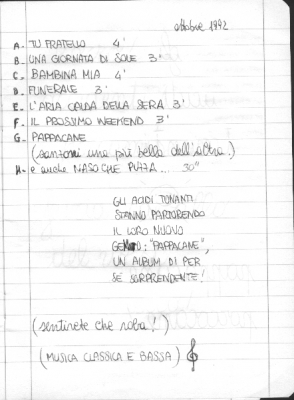 ottobre 1992
A - TU FRATELLO 4'
B - UNA GIORNATA DI SOLE 3'
C - BAMBINA MIA 4'
D - FUNERALE 3'
E - L'ARIA CALDA DELLA SERA 3'
F - IL PROSSIMO WEEKEND 3'
G - PAPPACANE
(canzoni una più bella dell'altra.)
H - e anche NASO CHE PUZZA... 30"
GLI ACIDI TONANTI
STANNO PARTORENDO
IL LORO NUOVO
: "PAPPACANE",
UN ALBUM DI PER
SÉ SORPRENDENTE!
(sentirete che roba!)
(MUSICA CLASSICA E BASSA)